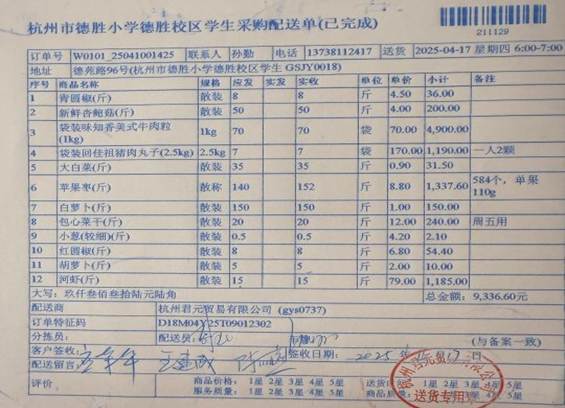 杭州市德胜小学德胜校区学生采购配送单(已完成)
211129
订单号 W0101_25041001425 联系人 孙勤 电话 13738112417 送货 2025-04-17 星期四 6:00-7:00
地址 德苑路96号(杭州市德胜小学德胜校区学生 GSJY0018)
序号 商品名称 规格 应发 实发 应收 实收 单位 单价 小计 备注
1 青圆椒(斤) 散装 8 8 斤 4.50 36.00
2 新鲜杏鲍菇(斤) 散装 50 50 斤 4.00 200.00
3 袋装味知香美式牛肉粒(1kg) 1kg 70 70 袋 70.00 4,900.00
4 袋装回佳祖猪肉丸子(2.5kg) 2.5kg 7 7 袋 170.00 1,190.00 一人2颗
5 大白菜(斤) 散装 35 35 斤 0.90 31.50
6 苹果枣(斤) 散称 140 152 斤 8.80 1,337.60 584个,单果110g
7 白萝卜(斤) 散装 150 150 斤 1.00 150.00
8 包心菜干(斤) 散装 20 20 斤 12.00 240.00 周五用
9 小葱(较细)(斤) 散装 0.5 0.5 斤 4.20 2.10
10 红圆椒(斤) 散装 8 8 斤 6.80 54.40
11 胡萝卜(斤) 散装 5 5 斤 2.00 10.00
12 河虾(斤) 散装 15 15 斤 79.00 1,185.00
大写:玖仟叁佰叁拾陆元陆角 总金额:9,336.60元
配送商 杭州君元贸易有限公司 (gys0737)
订单特征码 D18M04Y25T09012302
分拣员: 配送员: (与备案一致)
客户签收: 签收日期: 2025年 17日
配送留言:
评价 商品价格: 1星 2星 3星 4星 5星 送货
商品质量: 1星 2星 3星 4星 5星
服务质量: 1星 2星 3星 4星 5星
送货专用